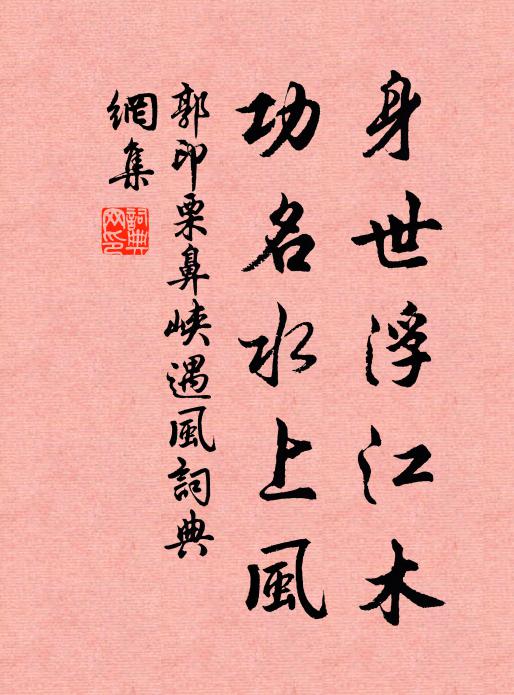 身世浮江木
功名水上風
郭印栗鼻峽遇風詞典
網集
詞典
网印